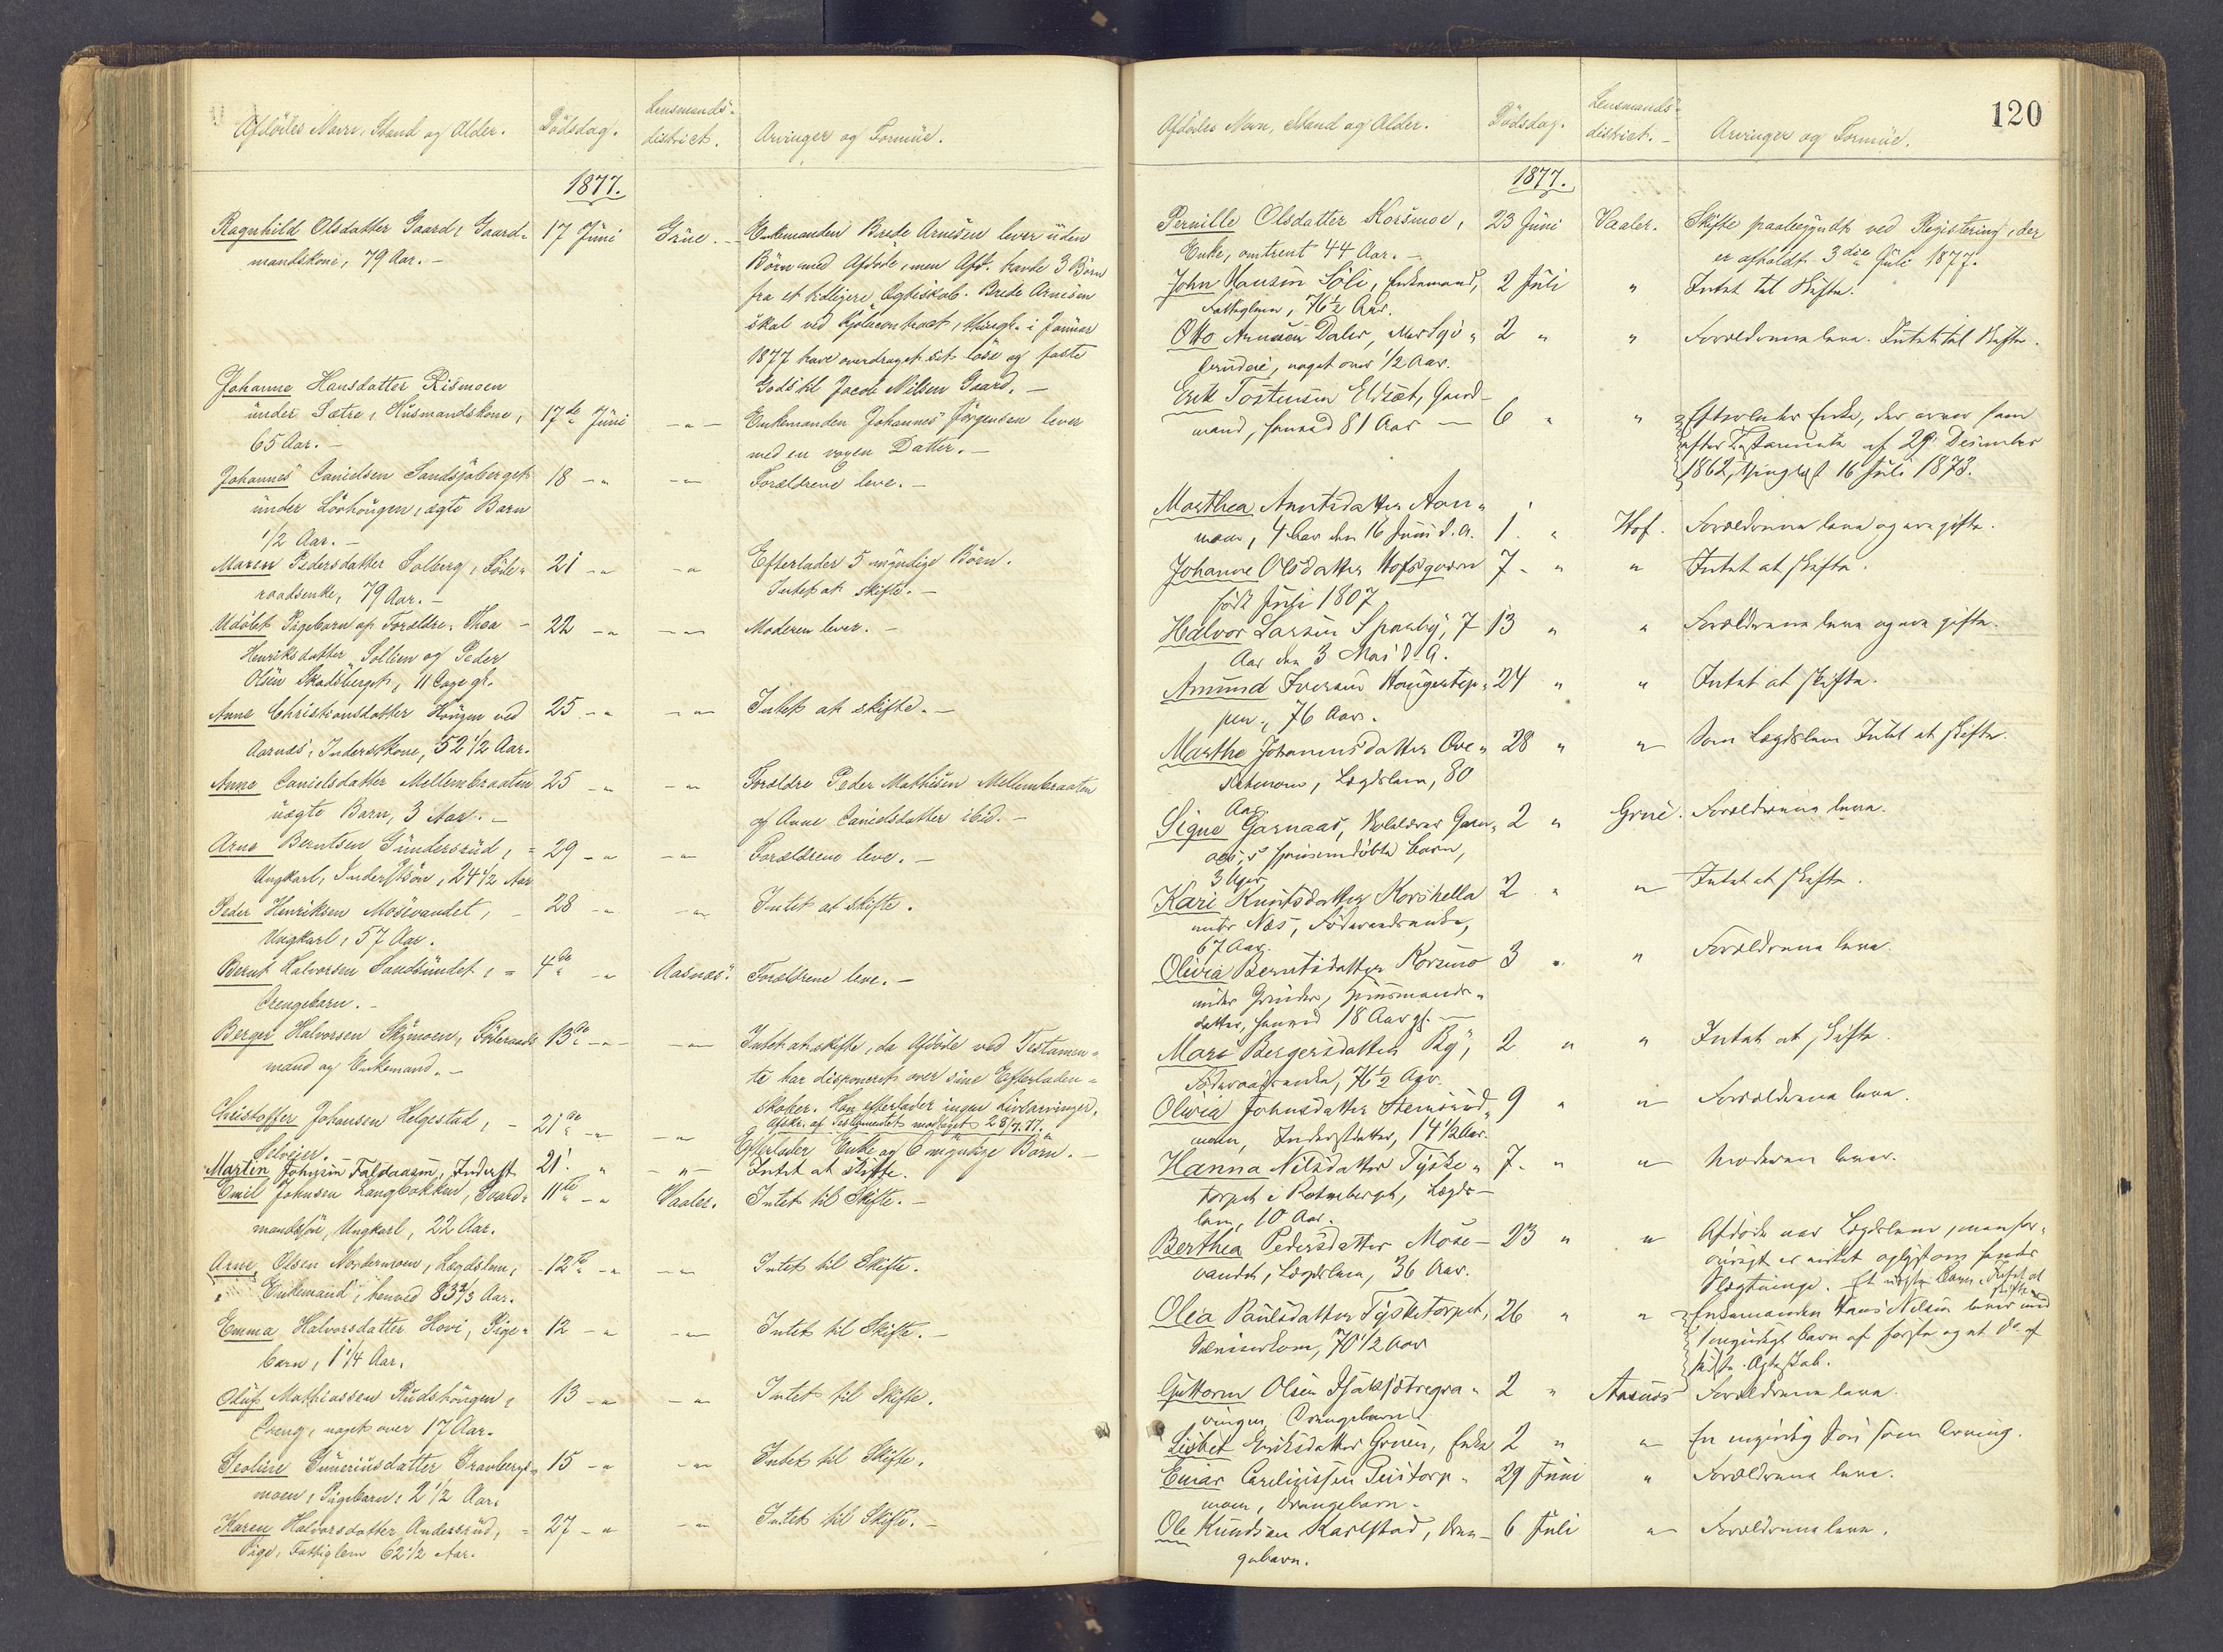 Afdødes Navn, Stand og Alder.
Dødsdag.
Lensmands-
district.
Arvinger og Formue.
1877.
Ragnhild Olsdatter Gaard, Gaard-
mandskone, 79 Aar. –
17 Juni
Grue. –
Enkemanden Brede Arnesen lever uden
Børn med Afdøde, men Afd. havde 3 Børn
fra et tidligere Ægteskab. Brede Arnesen
skal ved Kjøbecontract, thingl. i Januar
1877 have overdraget sit løse og faste
Gods til Jacob Nilsen Gaard. –
Johanne Hansdatter Rismoen
under Sætre, Husmandskone,
65 Aar. –
17de Juni
– " –
Enkemanden Johannes Jørgensen lever
med en voxen Datter. –
Johannes Danielsen Sandsjøberget
under Løvhaugen, ægte Barn
1/2 Aar. –
18 – "
– " –
Forældrene leve. –
Maren Pedersdatter Solberg, Føde-
raadsenke, 79 Aar. –
21 – "
– "
Efterlader 5 myndige Børn.
Intet at skifte. –
Udøbt Pigebarn af Forældre: Thea
Henriksdatter Sollien og Peder
Olsen Skadsberget, 11 Dage gl.
22 – "
– " –
Moderen lever. –
Anne Christiansdatter Haugen ved
Aarnæs, Inderstkone, 52 1/2 Aar.
25 – "
– " –
Intet at skifte. –
Anne Danielsdatter Mellembraaten
uægte Barn, 3 Aar. –
25 – "
– " –
Forældre Peder Mathisen Mellembraaten
og Anne Danielsdatter ibid. –
Arne Berntsen Gundersrud,
Ungkarl, Inderstsøn, 24 1/2 Aar
29 – "
– " –
Forældrene leve. –
Peder Henriksen Mosevandet,
Ungkarl, 57 Aar.
28 – "
– " –
Intet at skifte.
Bernt Halvorsen Sandsundet,
Drengebarn. –
4de – "
Aasnæs.
Forældrene leve. –
Berger Halvorsen Skymoen, Føderaads
mand og Enkemand. –
13de – "
– " –
Intet at skifte, da Afdøde ved Testamen-
te har disponeret over sine Efterladen-
skaber. Han efterlader ingen Livsarvinger.
Afskr. af Testamentet modtaget 28/7.77.
Christoffer Johansen Helgestad,
Selveier.
21de – "
– "
Efterlader Enke og 6 myndige Børn. –
Martin Johnsen Faldaasen, Inderst.
21. "
– " –
Intet at skifte.
Emil Johnsen Langbakken, Gaard-
mandssøn, Ungkarl, 22 Aar.
11te – "
Vaaler.
Intet til Skifte. –
Arne Olsen Nordermoen, Lægdslem,
Enkemand, henved 83 2/3 Aar.
12te – "
– " –
Intet til Skifte.
Emma Halvorsdatter Hovi, Pige-
barn, 1 1/4 Aar.
12 – "
– " –
Intet til Skifte. –
Oluf Mathiassen Rudshaugen,
Dreng, noget over 17 Aar.
13 – "
– " –
Intet til Skifte.
Teoline Guneriusdatter Gravbergs-
moen, Pigebarn, 2 1/2 Aar.
15 – "
– " –
Intet til Skifte.
Karen Halvorsdatter Andersrud,
Pige, Fattiglem 62 1/2 Aar.
27 – "
– " –
Intet til Skifte. –
120
Afdødes Navn, Stand og Alder.
Dødsdag.
Lensmands-
district. –
Arvinger og Formue.
1877.
Pernille Olsdatter Korsmoe,
Enke, omtrent 44 Aar. –
23 Juni
Vaaler.
Skifte paabegyndt ved Registering, der
er afholdt 3die Juli 1877.
John Hansen Søli, Enkemand,
Fattiglem, 76 1/2 Aar.
2 Juli
"
Intet til Skifte.
Otto Arnesen Daler,
noget over 1/2 Aar.
2 "
"
Forældrene leve. Intet til Skifte.
Erik Tostensen Eldset, Gaard-
mand, henved 81 Aar –
6 "
"
Efterlader Enke, der arver ham
efter Testamente af 29 December
1862, thinglæst 16 Juli 1873.
Marthea Arntsdatter Aan-
moen, 4 Aar den 16 Juni d. A.
1. "
Hof.
Forældrene leve og ere gifte.
Johanne Olsdatter Hofsqværn
født Juli 1807
7 – "
"
Intet at skifte.
Halvor Larsen Sparby, 7
Aar den 3 Mai d. A.
13 "
"
Forældrene leve og ere gifte.
Amund Iversen Haugerstep-
pen, 76 Aar.
24 "
"
Intet at skifte.
Marthe Johannesdatter Ove-
Lægdslem, 80
Aar
28 "
"
Som Lægdslem Intet at skifte.
Signe Garnaas,
hjemmedøbt Barn,
3 Uger
2 "
Grue.
Forældrene leve.
Kari Knutsdatter Korshella
under Næs, Føderaadsenke,
67 Aar.
2 "
"
Intet at skifte.
Olivia Berntsdatter Korsmo
under Grinder, Huusmands-
datter, henved 18 Aar gl. –
3 "
"
Forældrene leve.
Mari Bergersdatter Ry,
Føderaadsenke, 76 1/2 Aar.
2 "
"
Intet at skifte.
Olivia Johnsdatter Stemsrud-
moen, Inderstdatter, 14 1/2 Aar.
9 "
"
Forældrene leve.
Hanna Nilsdatter Tyske-
torpet i Rotneberget, Lægds-
lem, 10 Aar.
7 – "
"
Moderen lever.
Berthea Pedersdatter Mose-
vandet, Lægdslem, 36 Aar.
23 "
"
Afdøde var Lægdslem, men for-
øvrigt er intet oplyst om hendes
Slægtninge. Et uægte Barn. Intet at
skifte
Olea Paulsdatter Tysketorpet,
70 1/2 Aar
26 "
"
Enkemanden Hans Nilsen lever med
1 myndigt Barn af første og et do af
sidste Ægteskab.
Guttorm Olsen
Drengebarn
2 "
Aasnæs
Forældrene leve.
Lisbet Eriksdatter Gruen, Enke
2 "
"
En myndig Søn som Arving.
Einar
moen, Drengebarn.
29 Juni
"
Forældrene leve.
Ole Knudsen Karlstad, Dren-
gebarn.
6 Juli
"
Forældrene leve.